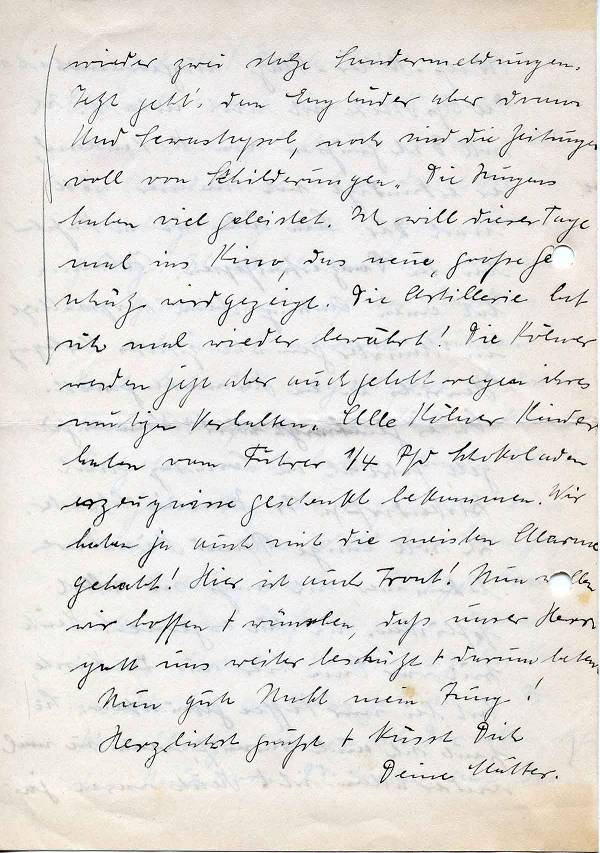 wieder zwei stolze Sondermeldungen.
Jetzt geht's den Engländer aber dran.
Und Sewastopol, noch sind die Zeitungen
voll von Schilderungen. Die Jungens
haben viel geleistet. Ich will dieser Tage
mal ins Kino, das neue, große Ge-
schütz wird gezeigt. Die Artillerie hat
sich mal wieder bewährt! Die Kölner
werden jetzt aber auch gelobt wegen ihres
mutigen Verhalten. Alle Kölner Kinder
haben vom Führer 1/4 Pfd Schokoladen
erzeugnisse geschenkt bekommen. Wir
haben ja auch mit die meisten Alarme
gehabt! Hier ist auch Front! Nun wollen
wir hoffen + wünschen, daß unser Herr
gott uns weiter beschützt + darum beten.
Nun gute Nacht mein Jung!
Herzlichst grüßt + küsst Dich
Deine Mutter.